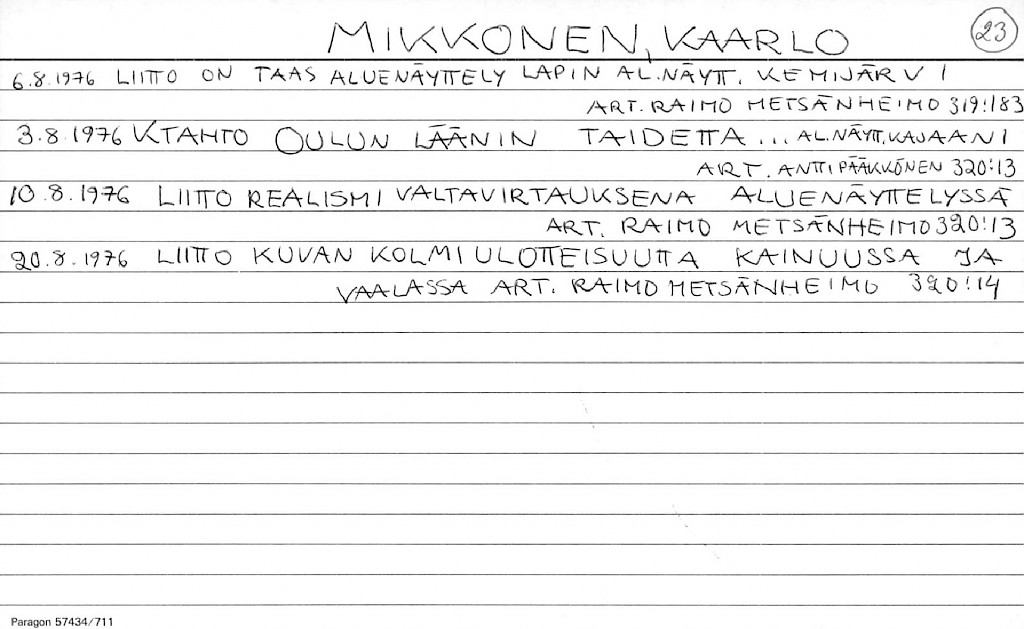 MIKKONEN, KAARLO 23
6.8.1976 LIITTO ON TAAS ALUENÄYTTELY LAPIN AL.NÄYTT. KEMIJÄRVI
ART. RAIMO METSÄNHEIMO 319:183
3.8.1976 KTAHTO OULUN LÄÄNIN TAIDETTA... AL.NÄYTT. KAJAANI
ART. ANTTI PÄÄKKÖNEN 320:13
10.8.1976 LIITTO REALISMI VALTAVIRTAUKSENA ALUENÄYTTELYSSÄ
ART. RAIMO METSÄNHEIMO 320:13
20.8.1976 LIITTO KUVAN KOLMIULOTTEISUUTTA KAINUUSSA JA
VAALASSA ART. RAIMO METSÄNHEIMO 320:14
Paragon 57434/711